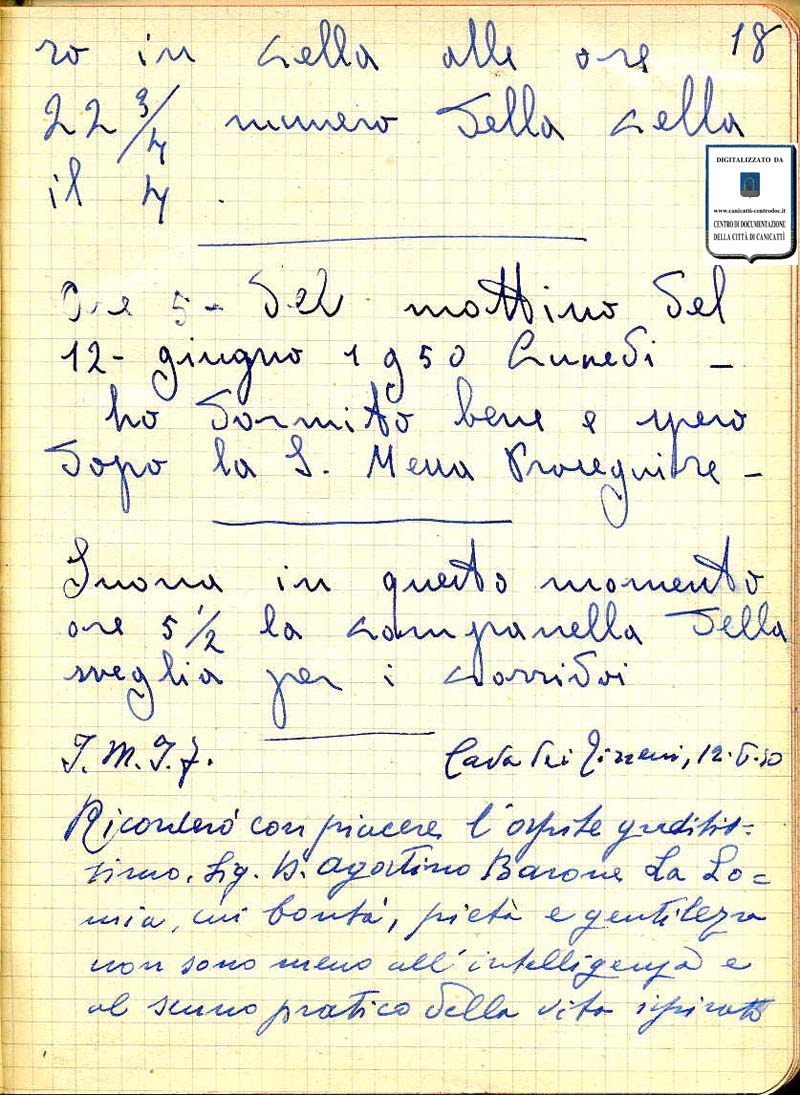 18
ro in cella alle ore
22 3/4 numero della cella
il 4.
DIGITALIZZATO DA
www.canicatti-centrodoc.it
CENTRO DI DOCUMENTAZIONE
DELLA CITTÀ DI CANICATTÌ
Ore 5 - del mattino del
12 - giugno 1950 Lunedi -
ho dormito bene e spero
dopo la S. Messa Proseguire -
Suona in questo momento
ore 5 1/2 la campanella della
sveglia per i corridoi
Cava dei Tirreni, 12.
Ricorderò con piacere l'ospite graditis-
simo, Sig. D. Agostino Barone La Lo=
mia, cui bontà, pietà e gentilezza
non sono meno all'intelligenza e
al senno pratico della vita ispirato